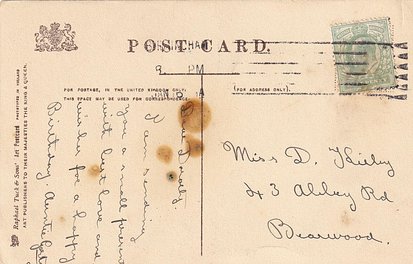 POST CARD.
PM
FOR POSTAGE, IN THE UNITED KINGDOM ONLY,
THIS SPACE MAY BE USED FOR CORRESPONDENCE.
(FOR ADDRESS ONLY).
Raphael Tuck & Sons' Art Postcard
ART PUBLISHERS TO THEIR MAJESTIES THE KING & QUEEN.
Dear Dorothy.
I am sending
you a small present
with best love and
wishes for a happy
Birthday. Auntie
Miss D. Kirby
43 Abbey Rd
Bearwood.